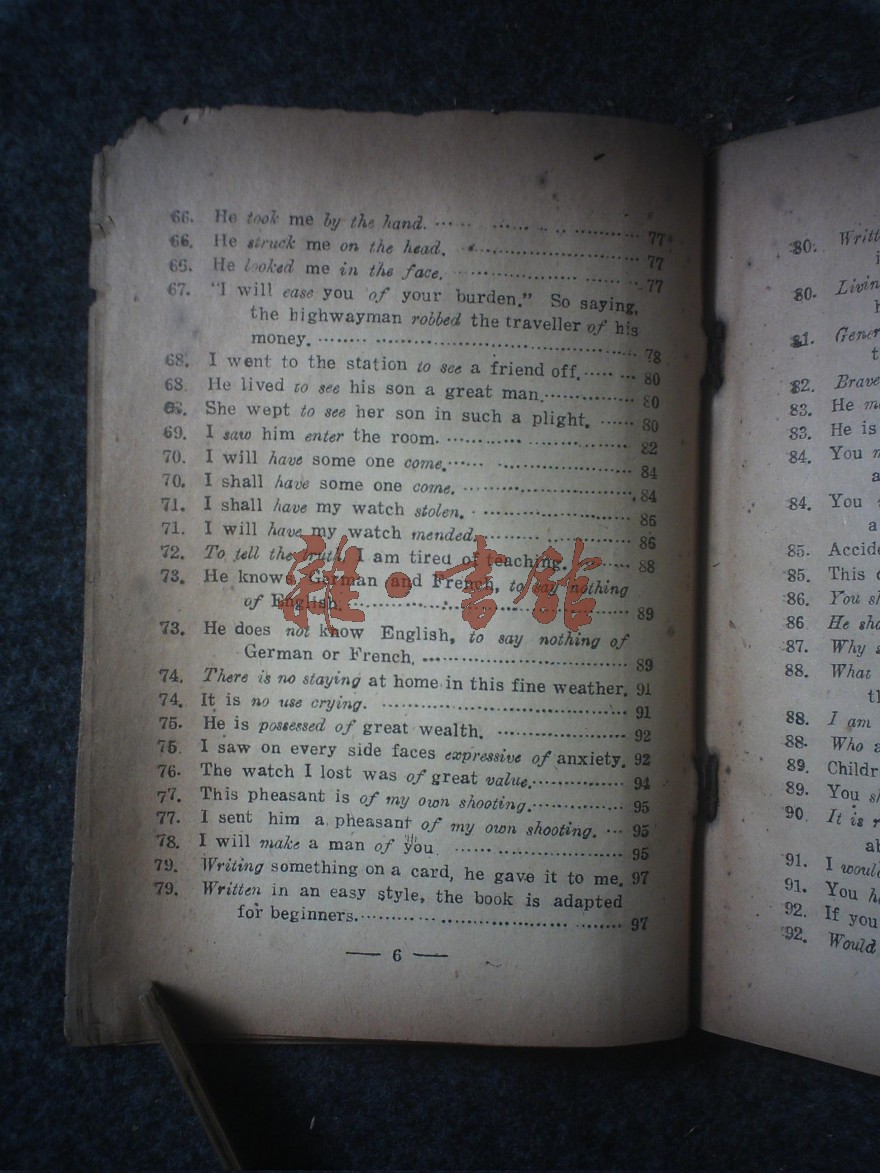 66. He took me by the hand. 77
66. He struck me on the head. 77
66. He looked me in the face. 77
67. "I will ease you of your burden." So saying,
the highwayman robbed the traveller of his
money. 78
68. I went to the station to see a friend off. 80
68. He lived to see his son a great man. 80
68. She wept to see her son in such a plight. 80
69. I saw him enter the room. 82
70. I will have some one come. 84
70. I shall have some one come. 84
71. I shall have my watch stolen. 86
71. I will have my watch mended. 86
72. To tell the truth, I am tired of teaching. 88
73. He knows German and French, to say nothing
of English. 89
73. He does not know English, to say nothing of
German or French. 89
74. There is no staying at home in this fine weather. 91
74. It is no use crying. 91
75. He is possessed of great wealth. 92
75. I saw on every side faces expressive of anxiety. 92
76. The watch I lost was of great value. 94
77. This pheasant is of my own shooting. 95
77. I sent him a pheasant of my own shooting. 95
78. I will make a man of you 95
79. Writing something on a card, he gave it to me. 97
79. Written in an easy style, the book is adapted
for beginners. 97
— 6 —
雜·書館
80.
80.
81.
82. Brave
83. He
83. He is
84. You
84. You
85.
85. This
86. You
86. He
87. Why
88. What
88. I am
88. Who
89.
89. You
90. It is
91. I
91. You
92. If you
92. Would